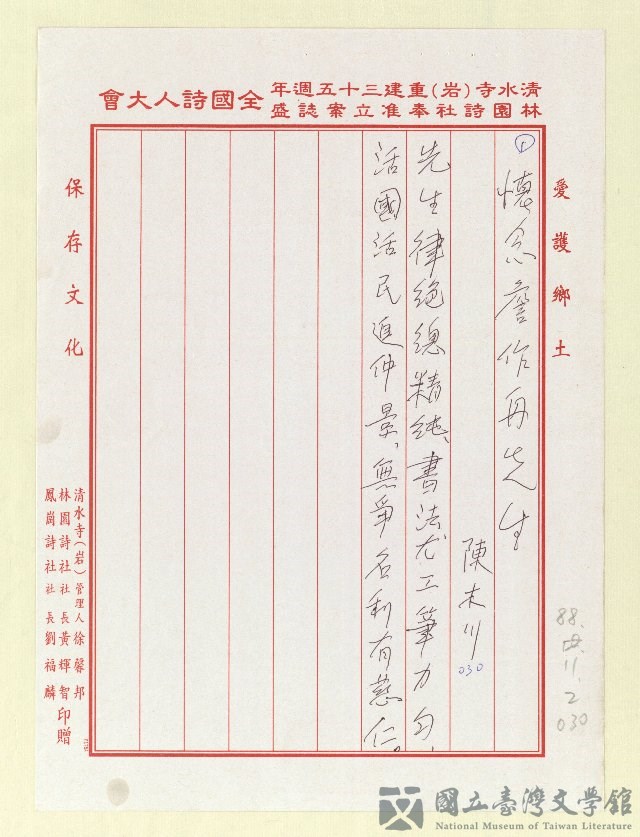 清水寺(岩)重建三十五週年
林園詩社奉准立案誌盛
全國詩人大會
愛護鄉土
①懷念詹作再先生
陳木川
030
先生律絕總精純、書法尤工筆力勻、
活國活民追仲景、無爭名利有慈仁。
保存文化
清水寺(岩)管理人徐馨邦
林園詩社社長黃輝智
鳳崗詩社社長劉福麟
印贈
88.
11.2
030
國立臺灣文學館
National Museum of Taiwan Literature